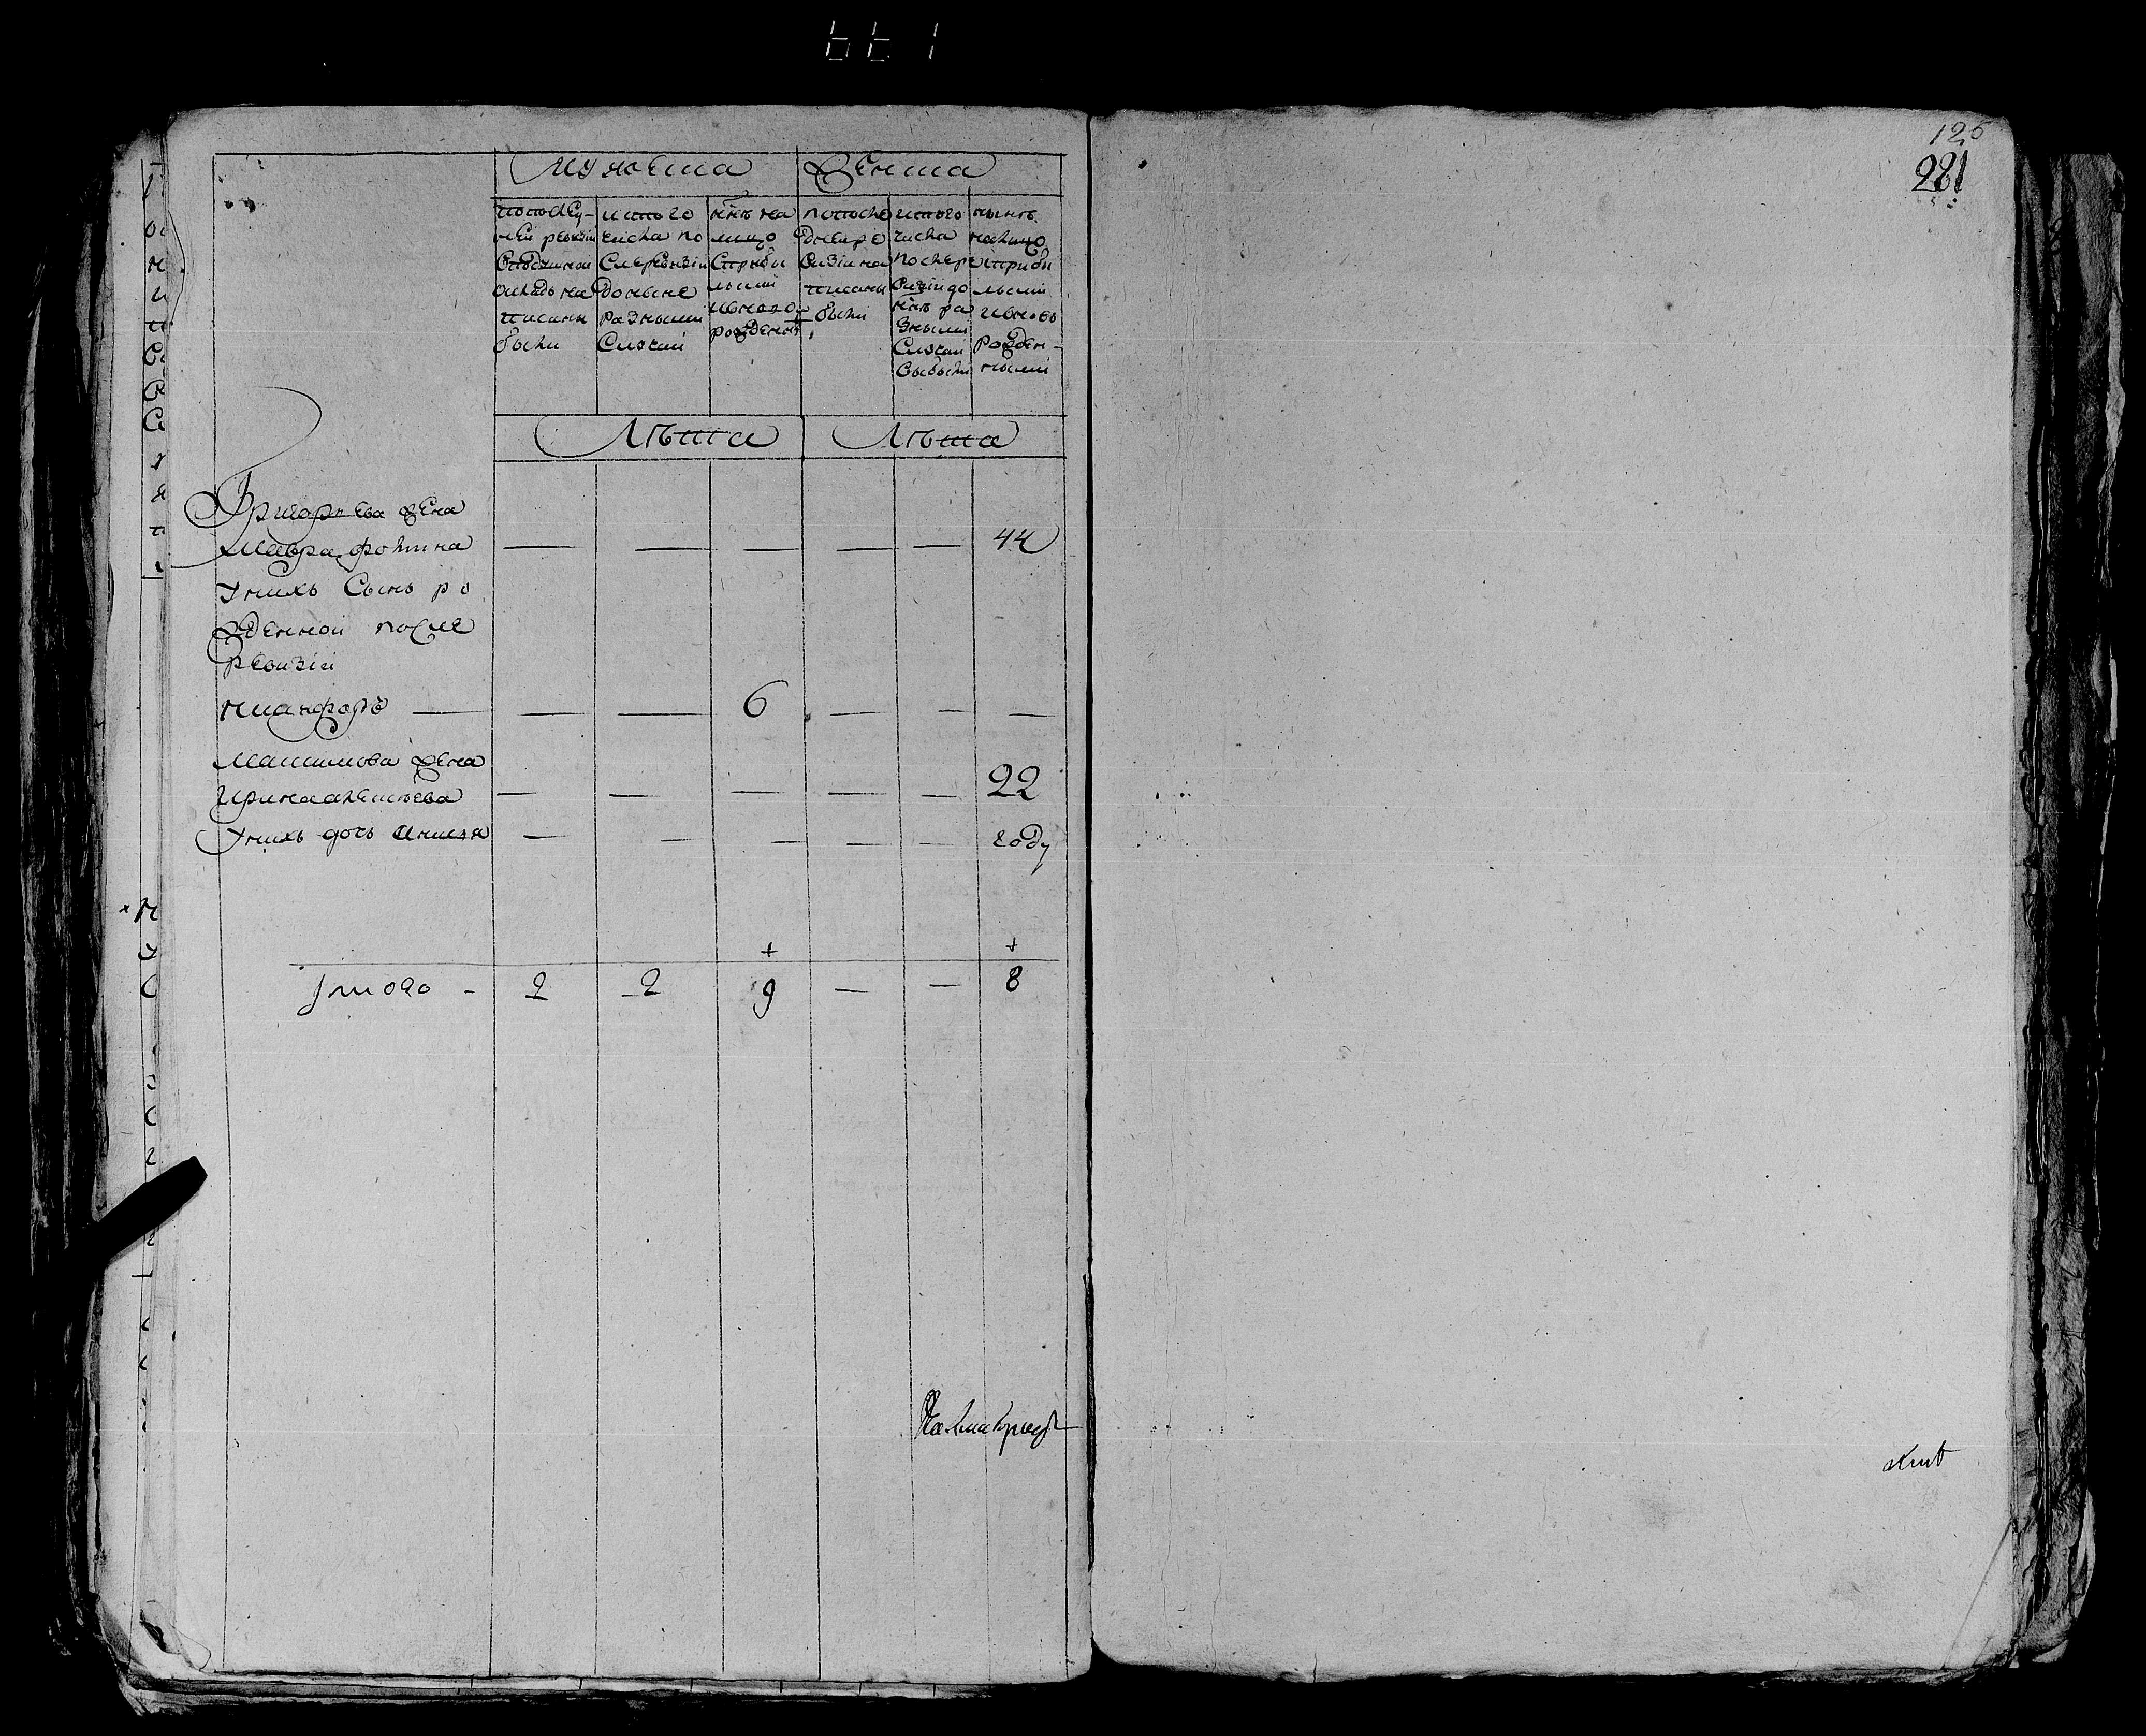 125
281
мужеска женска
попослед-
ней ревизии
в подушной
окладъ на
писаны
были
истого
числа по
сле ревизіи
до ныне
разными
случаи
ннѣ на
лицо
с прибы
лыми
и вново
рожденн
попосле
дней ре
визіи на
писаны
были
истого
числа
после ре
визіи до
ннѣ ра
зными
случаи
выбыли
нынѣ
налицо
с прибы
лыми
и вновь
рожден-
ными
Лѣта Лѣта
Григорьева жена
Мавра Фотина — — — — — 44
У нихъ сынъ ро
жденной после
ревизіи
Никифоръ — — — 6 — — —
Максимова жена
Ирина алексѣева — — — — — 22
У нихъ дочь Анисья — — — — — году
+ +
Итого - 2 2 9 — — 8